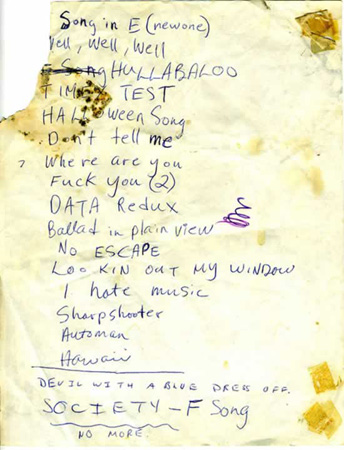 Song in E (new one)
Well, Well, Well
F Song HULLABALOO
TIME TEST
HALLOween Song
Don't tell me
? Where are you
Fuck you (2)
DATA Redux
Ballad in plain view
NO ESCAPE
LOOKIN OUT MY WINDOW
I hate music
Sharpshooter
Automan
Hawaii
DEVIL WITH A BLUE DRESS OFF.
SOCIETY - F Song
NO MORE.